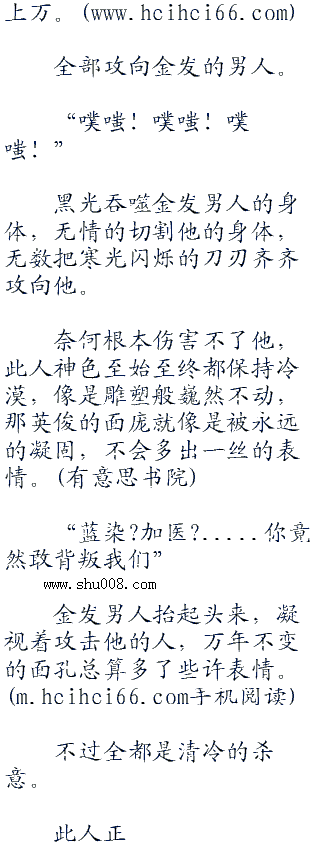 上万。(www.hcihci66.com)
全部攻向金发的男人。
“噗嗤！噗嗤！噗
嗤！”
黑光吞噬金发男人的身
体，无情的切割他的身体，
无数把寒光闪烁的刀刃齐齐
攻向他。
奈何根本伤害不了他，
此人神色至始至终都保持冷
漠，像是雕塑般巍然不动，
那英俊的面庞就像是被永远
的凝固，不会多出一丝的表
情。(有意思书院)
“蓝染?加医?.....你竟
然敢背叛我们”
www.shu008.com
金发男人抬起头来，凝
视着攻击他的人，万年不变
的面孔总算多了些许表情。
(m.hcihci66.com手机阅读)
不过全都是清冷的杀
意。
此人正